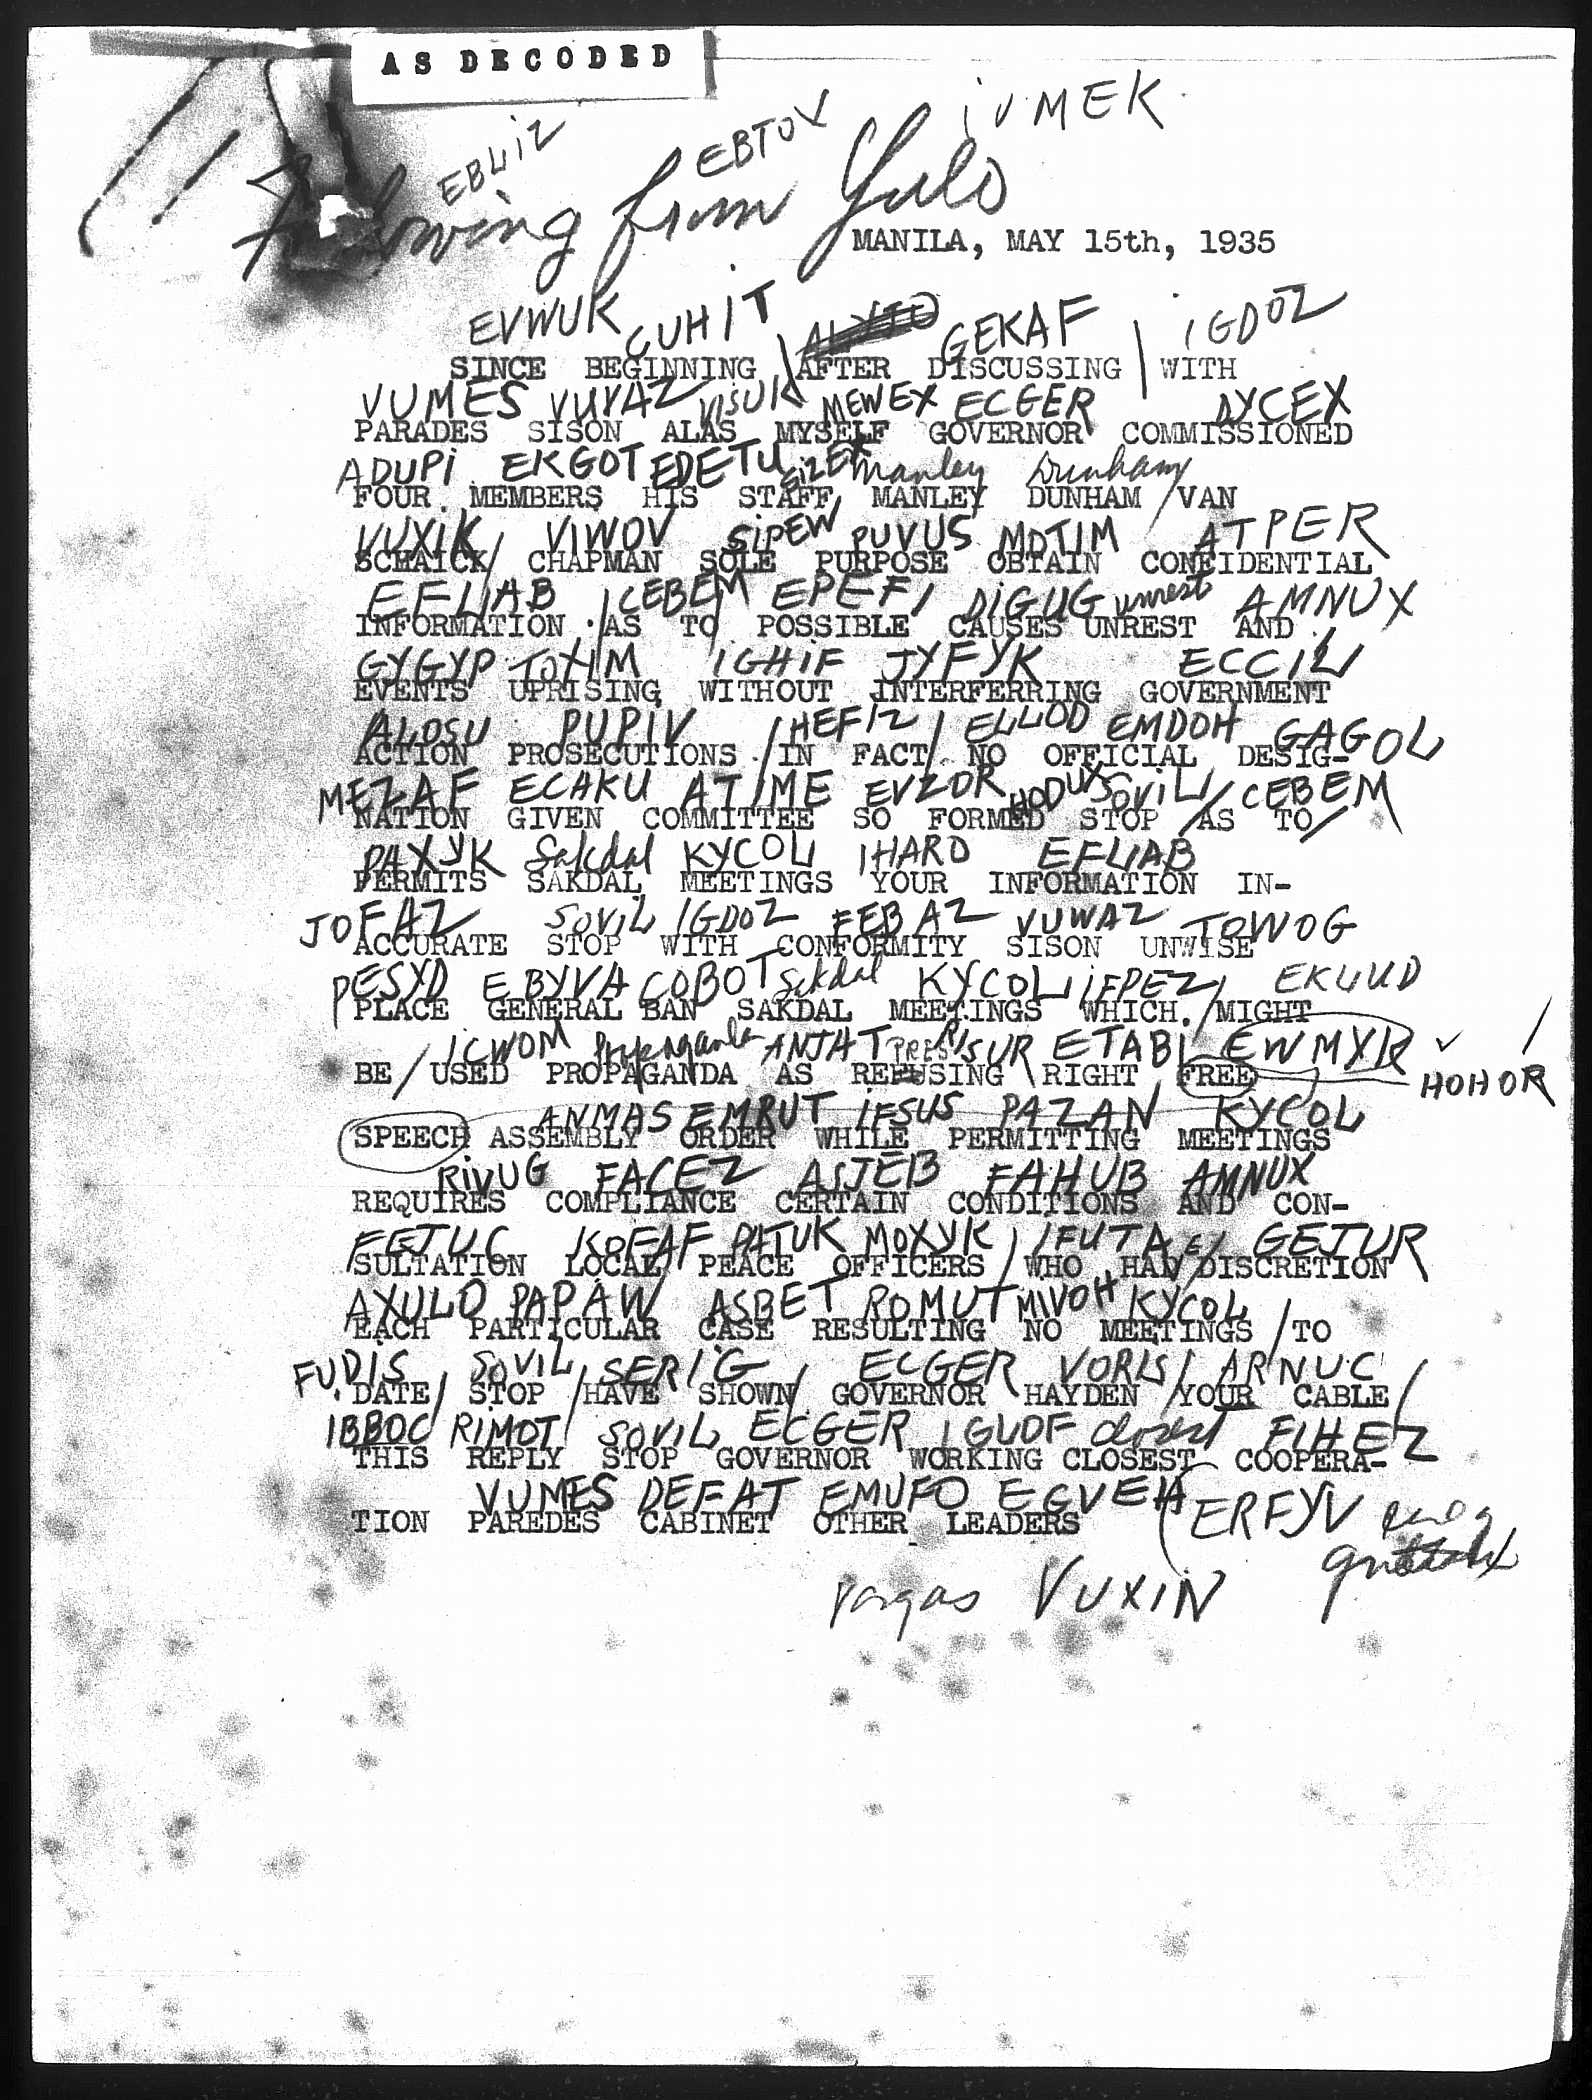 AS DECODED
EBLIZ EBTOV IVMEK
Following from Yulo
MANILA, MAY 15th, 1935
EVWUK CUHIT GEKAF IGDOZ
SINCE BEGINNING AFTER DISCUSSING WITH
VUMES VUVAZ VISUK MEWEX ECGER DYCEX
PARADES SISON ALAS MYSELF GOVERNOR COMMISSIONED
ADUPI EKGOT EDETU SIZEX Manley Dunham
FOUR MEMBERS HIS STAFF MANLEY DUNHAM VAN
VUXIK VIWOV SIPEW PUVUS MOTIM ATPER
SCHAICK CHAPMAN SOLE PURPOSE OBTAIN CONFIDENTIAL
EFLIAB CEBEM EPEFI DIGUG unrest AMNUX
INFORMATION AS TO POSSIBLE CAUSES UNREST AND
GYGYP TOXIM IGHIF JYFYK ECCIL
EVENTS UPRISING WITHOUT INTERFERRING GOVERNMENT
ALOSU PUPIV HEFIZ ELLOD EMDOH GAGOL
ACTION PROSECUTIONS IN FACT NO OFFICIAL DESIG-
MEZAF ECAKU ATIME EVZOR HODUX SOVIL CEBEM
NATION GIVEN COMMITTEE SO FORMED STOP AS TO
PAXYK Sakdal KYCOL IHARO EFLIAB
PERMITS SAKDAL MEETINGS YOUR INFORMATION IN-
JOFAZ SOVIL IGDOZ FEBAZ VUWAZ TOWOG
ACCURATE STOP WITH CONFORMITY SISON UNWISE
PESYD EBYVA COBOT Sakdal KYCOL IFPEZ EKLUD
PLACE GENERAL BAN SAKDAL MEETINGS WHICH MIGHT
ICWOM Propaganda ANJAT RISUR ETABI EWMYK
BE USED PROPAGANDA AS REFUSING RIGHT FREE
HOHOR
ANMAS EMRUT IFSUS PAZAN KYCOL
SPEECH ASSEMBLY ORDER WHILE PERMITTING MEETINGS
RIVUG FACEZ ASJEB FAHUB AMNUX
REQUIRES COMPLIANCE CERTAIN CONDITIONS AND CON-
FEJUC KOFAF PATUK MOXYK IFUTA GEJUR
SULTATION LOCAL PEACE OFFICERS WHO HAV DISCRETION
AXULO PAPAW ASBET ROMUT MIVOH KYCOL
EACH PARTICULAR CASE RESULTING NO MEETINGS TO
FUDIS SOVIL SERIG ECGER VORLS ARNUC
DATE STOP HAVE SHOWN GOVERNOR HAYDEN YOUR CABLE
IBBOC RIMOT SOVIL ECGER IGUOF closest FIHEZ
THIS REPLY STOP GOVERNOR WORKING CLOSEST COOPERA-
VUMES DEFAT EMUFO EGVEH ERFYV
TION PAREDES CABINET OTHER LEADERS
Vargas VUXIN